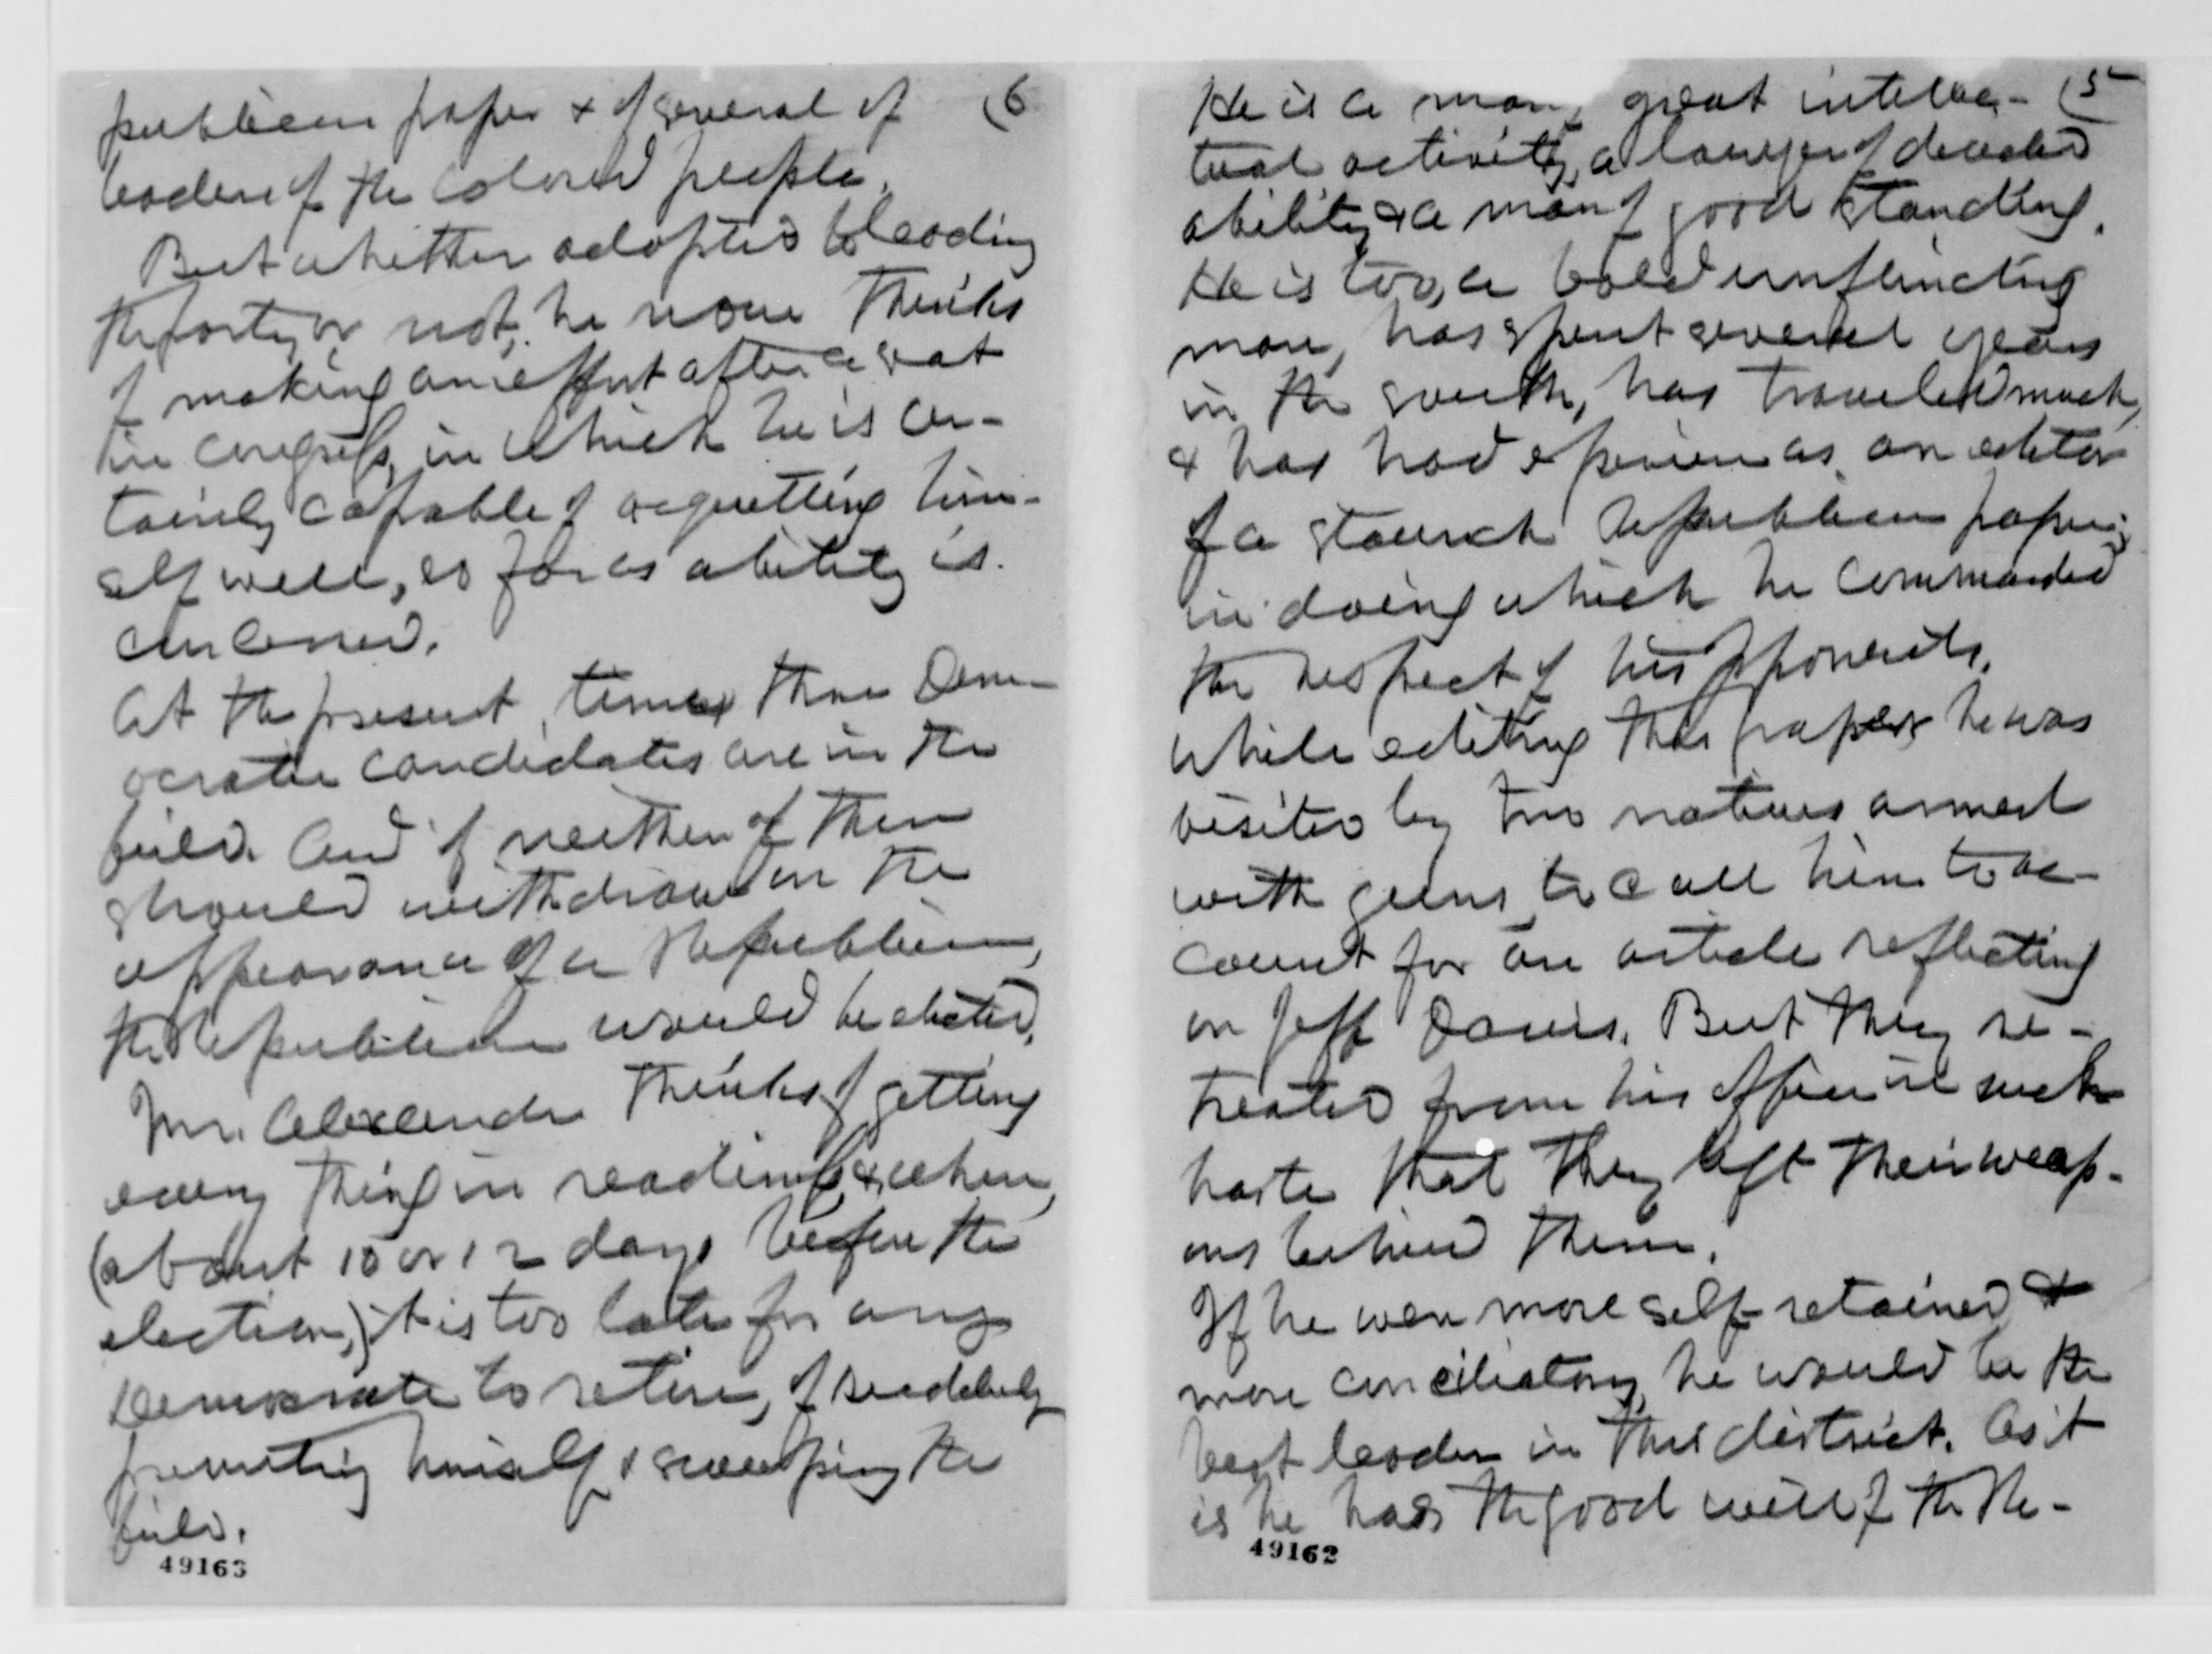 publican paper & of several of (6
leaders of the colored people.
But whether adopted to leading
the party or not, he now thinks
of making an effort after a seat
in congress, in which he is cer-
tainly capable of acquitting him-
self well, so far as ability is
concerned.
At the present time, three Dem-
ocratic candidates are in the
field. And if neither of them
should withdraw on the
appearance of a Republican,
the Republican would be elected.
Mr. Alexander thinks of getting
every thing in readiness, & when,
(about 10 or 12 days before the
election,) it is too late for any
Democrate to retire, of suddenly
presenting himself & sweeping the
field.
49163
He is a man, great intellec- (5
tual activity, a lawyer of decided
ability & a man of good standing.
He is too, a bold unflinching
man, has spent several years
in the south, has traveled much,
& has had experience as an editor
of a staunch Republican paper;
in doing which he commanded
the respect of his opponents.
While editing this paper he was
visited by two natives armed
with guns to call him to ac-
count for an article reflecting
on Jeff Davis. But they re-
treated from his office in such
haste that they left their weap-
ons behind them.
If he were more self-retained &
more conciliatory, he would be the
best leader in this district. As it
is he has the good will of the Re-
49162